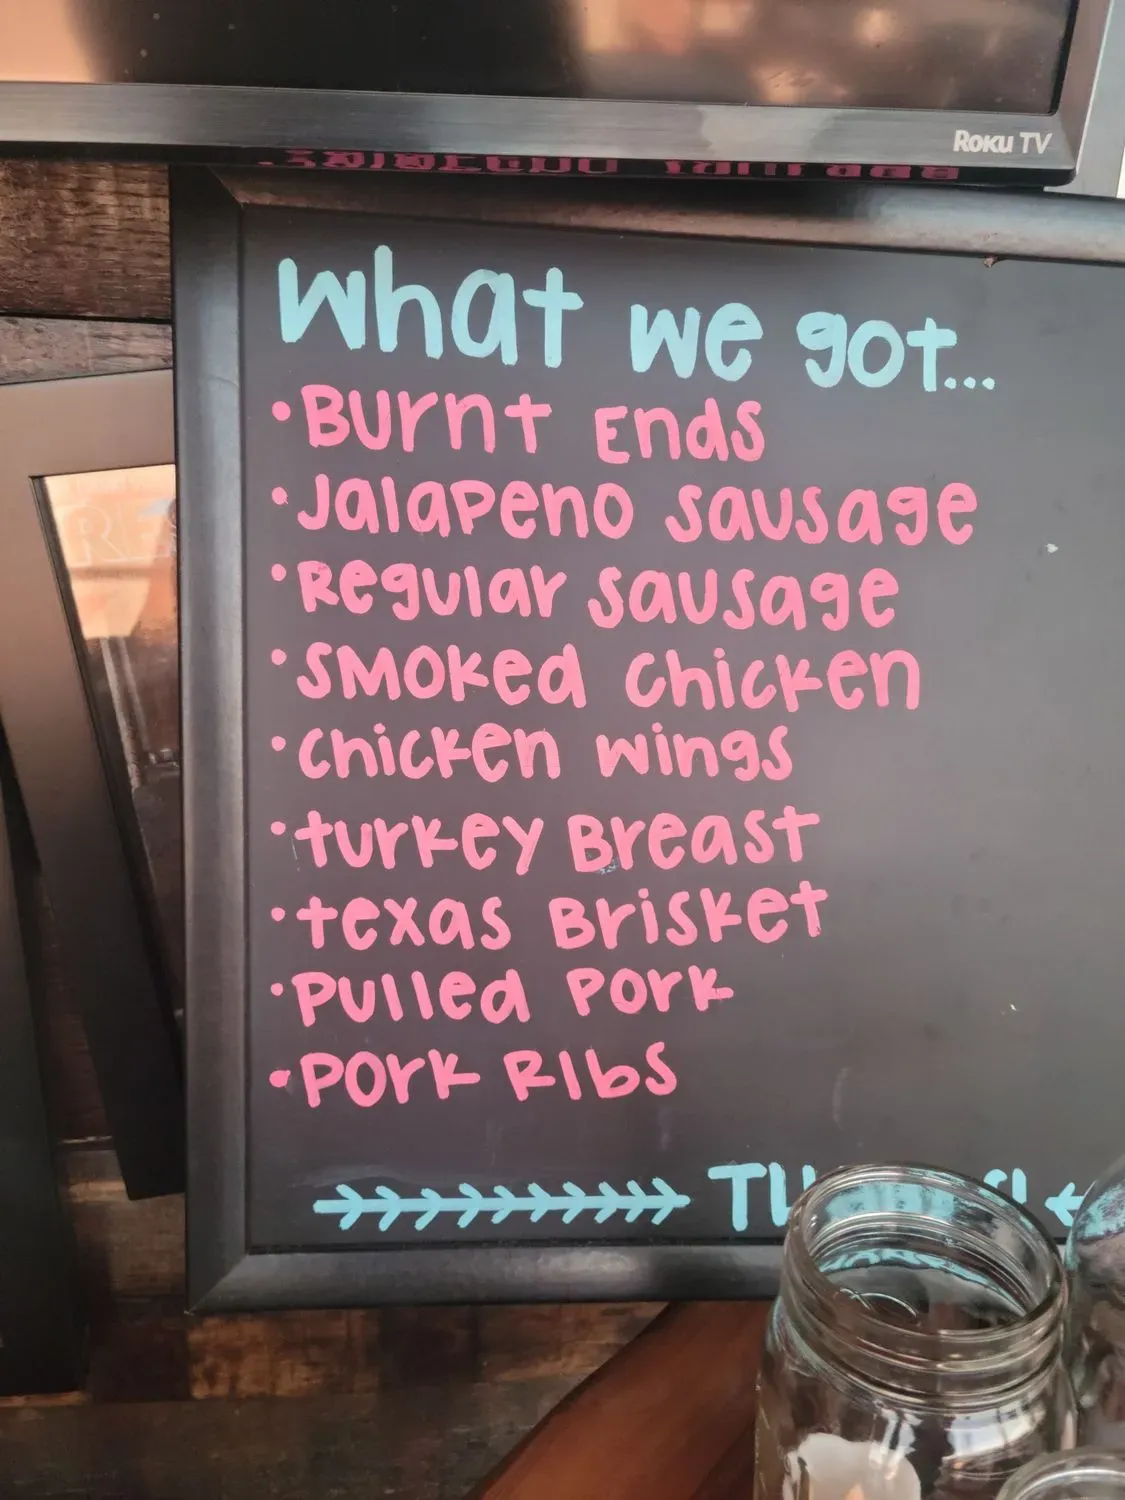 Roku TV
What we got...
• Burnt Ends
• Jalapeno Sausage
• Regular Sausage
• Smoked Chicken
• Chicken Wings
• Turkey Breast
• Texas Brisket
• Pulled Pork
• Pork Ribs